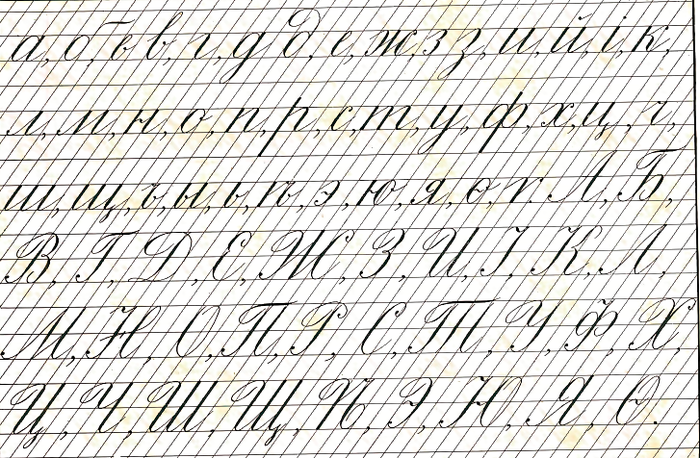 а, б, б, в, г, д, д, е, ж, з, з, и, й, і, к,
л, м, н, о, п, р, с, т, у, ф, х, ц, ч,
ш, щ, ъ, ы, ь, ѣ, э, ю, я, ѳ, ѵ. А, Б,
В, Г, Д, Е, Ж, З, И, І, К, Л,
М, Н, О, П, Р, С, Т, У, Ф, Х,
Ц, Ч, Ш, Щ, Ѣ, Э, Ю, Я, Ѳ.